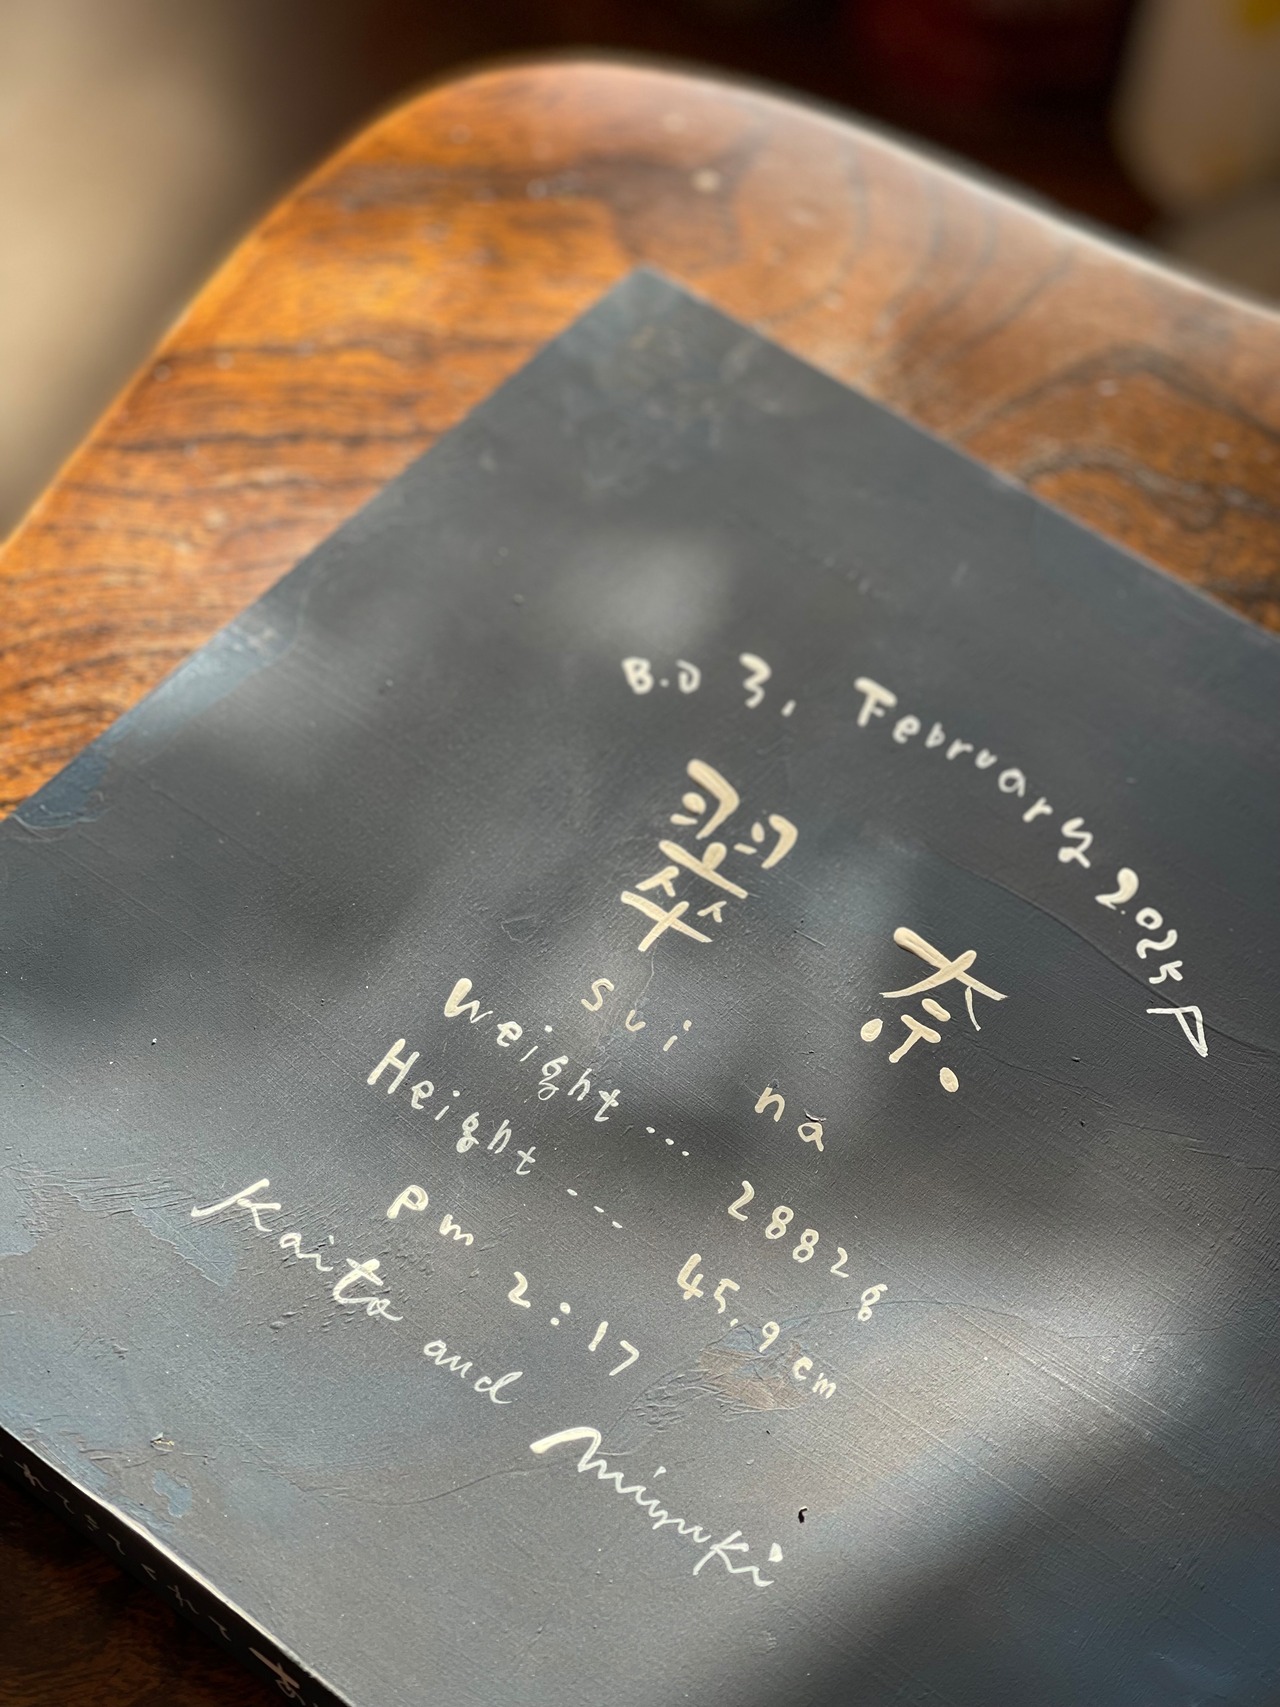 B.D 3, February 2025
翠 奈
sui na
Weight... 2882g
Height... 45.9cm
Pm 2:17
Kaito and Miyuki
れてきてくれて あ